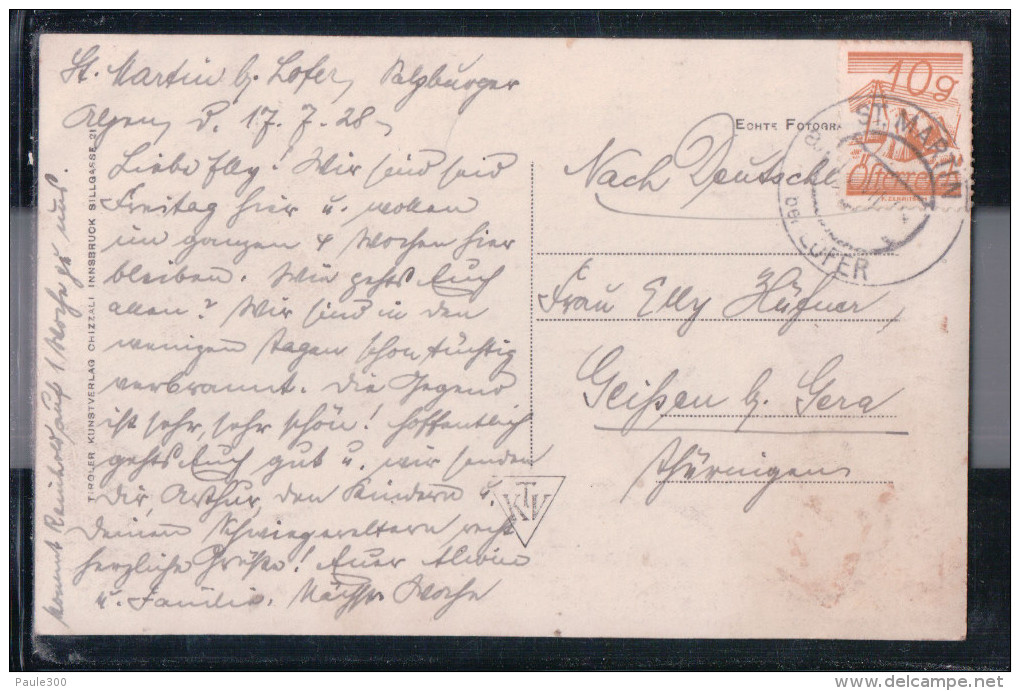 St. Martin b. Lofer, Salzburger
Alpen, d. 17. 7. 28.
Liebe Elly! Wir sind seid
Freitag hier u. wollen
im ganzen 4 Wochen hier
bleiben. Wie gehts Euch
allen? Wir sind in den
wenigen Tagen schon tüchtig
verbrannt. Die Gegend
ist sehr, sehr schön! Hoffentlich
gehts Euch gut u. wir senden
Dir, Arthur, den Kindern u.
Deinen Schwiegereltern recht
herzliche Grüße! Euer Alwin
u. Familie. Nächste Woche
kommt Reinhold auf 1 Woche zu uns.
TIROLER KUNSTVERLAG CHIZZALI INNSBRUCK SILLGASSE 21
ECHTE FOTOGRA
Nach Deutschl
Frau Elly Hüfner,
Geißen b. Gera
Thüringen
KTV
10g
Österre
ST. MARTIN
bei LOFER
Paule300